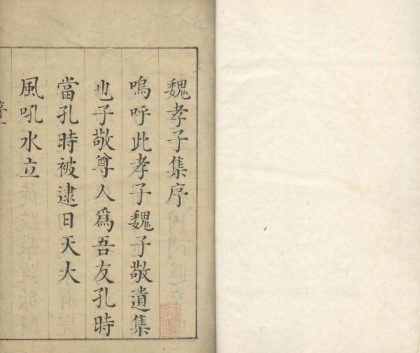 魏孝子集序
嗚呼此孝子魏子敬遺集
也子敬尊人爲吾友孔時
當孔時被逮日天大
風吼水立
序